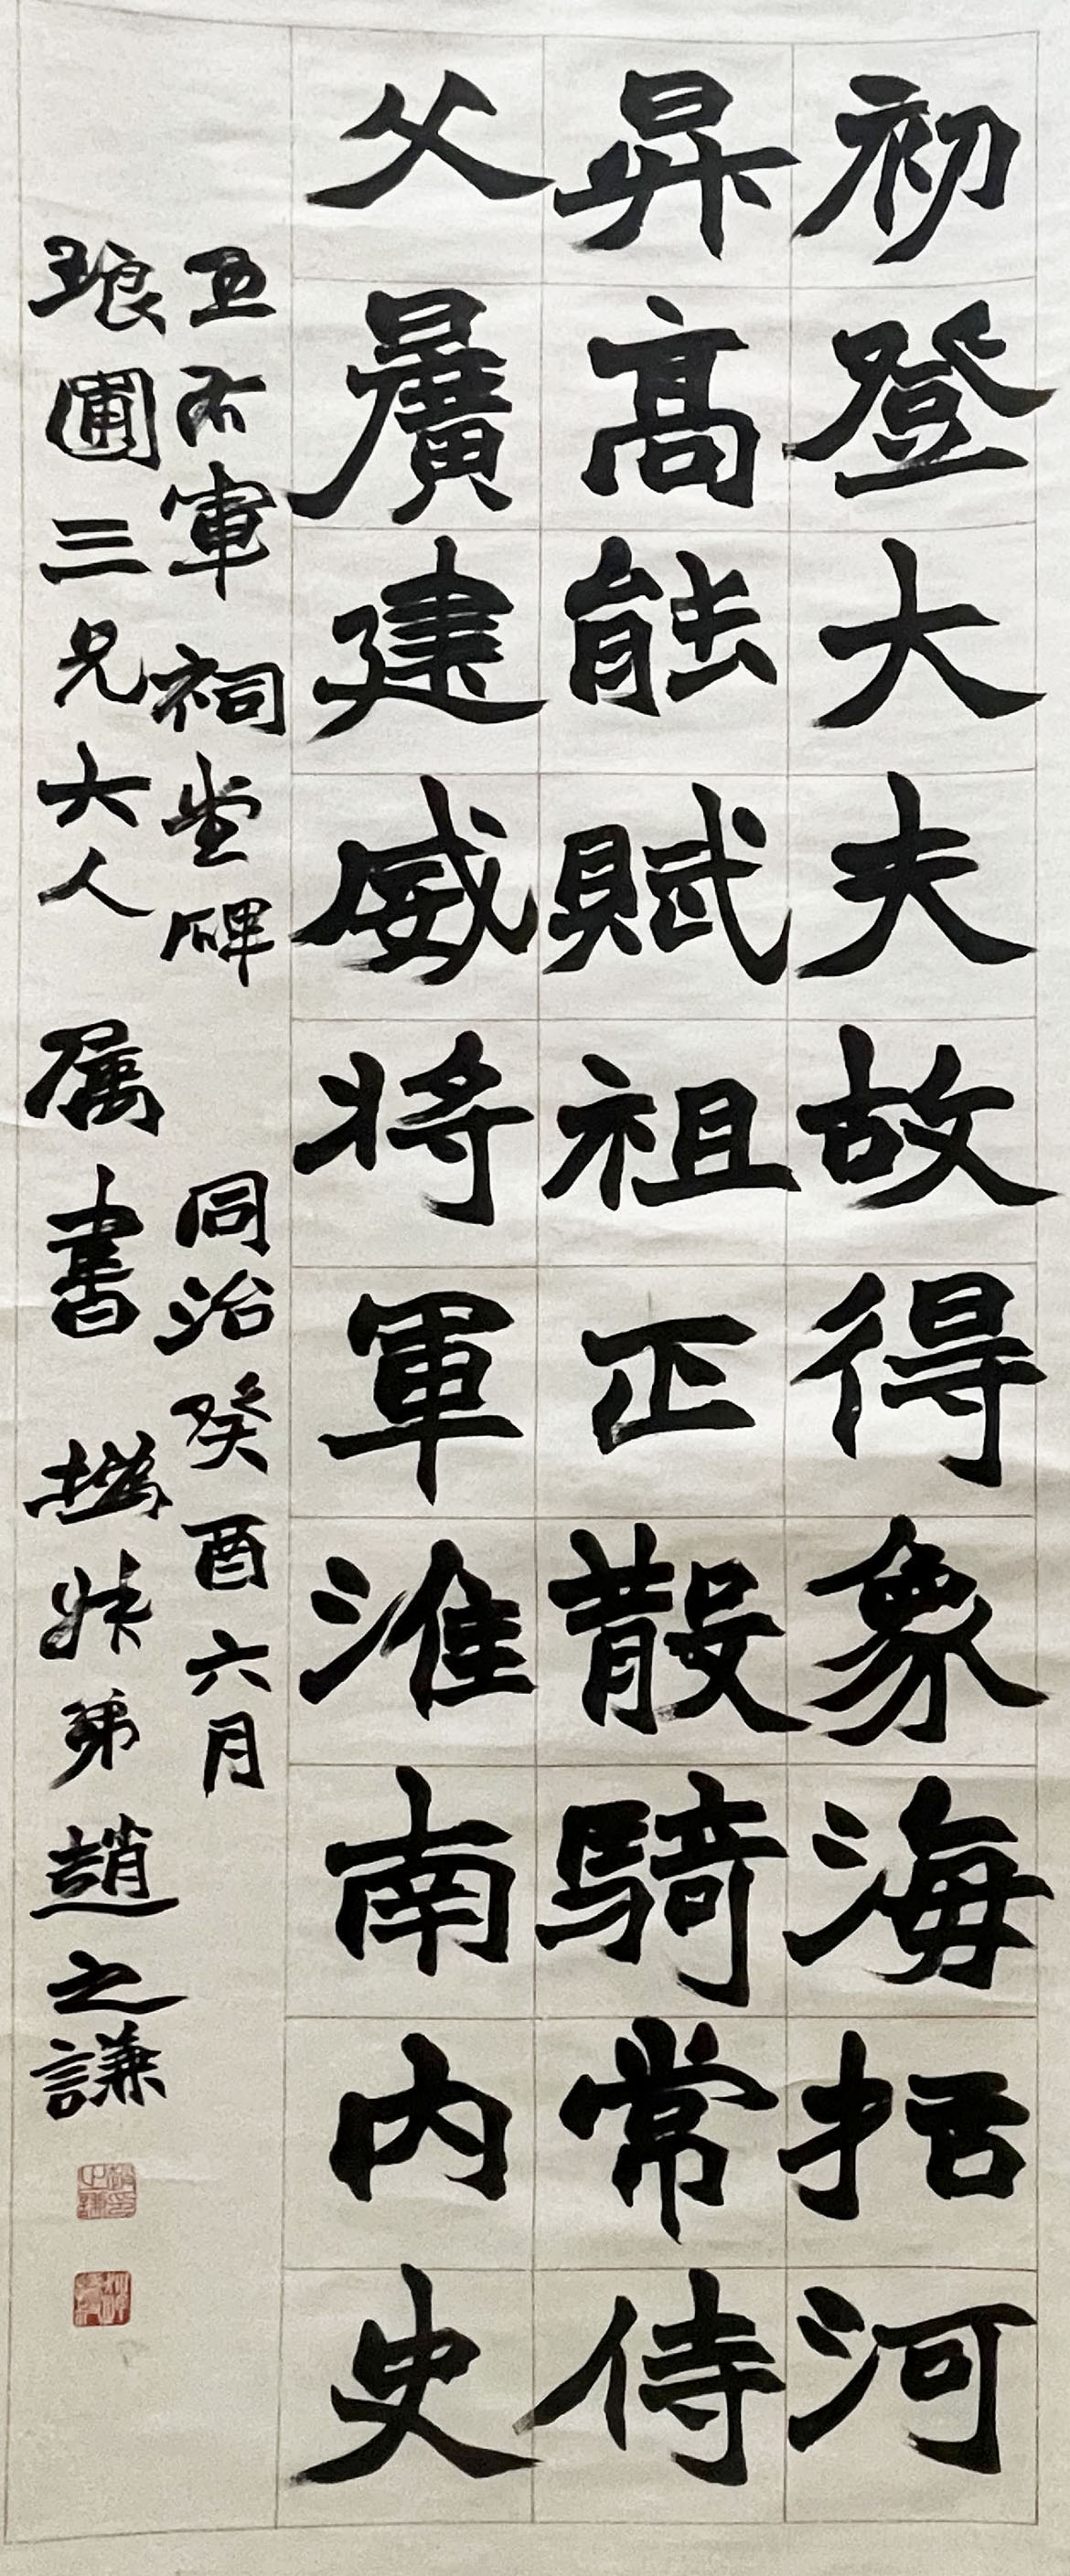 初登大夫故得象海括河
昇高能賦祖正散騎常侍
父曠建威將軍淮南内史
王右軍祠堂碑 同治癸酉六月
琅圃三兄大人 属書 撝叔弟趙之謙